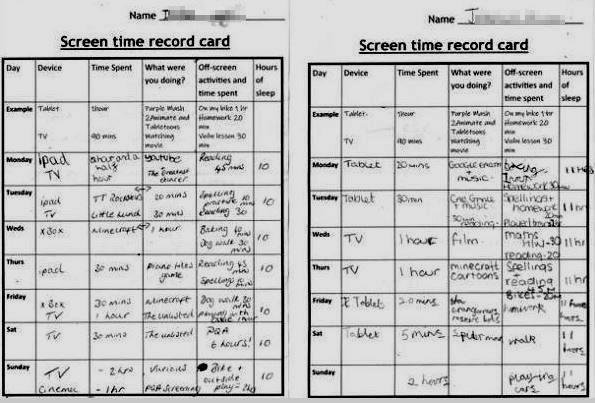 Name
Screen time record card
Day Device Time Spent What were you doing? Off-screen activities and time spent Hours of sleep
Example Tablet 1hour Purple Mash 2Animate and Tabletoons On my bike 1 hr Homework 20 min
TV 90 mins Watching movie Violin lesson 30 min
Monday ipad hour and a half Youtube Reading 45 mins 10
TV hour The Greatest dancer
Tuesday ipad TT Rockstars 20 mins Spelling practice 10 mins 10
TV 30 mins Reading 30
Weds xBox Minecraft 1 hour Baking 40 mins 10
Dog walk 30 mins
Thurs ipad 30 mins Piano tiles game Reading 45 mins 10
Spellings
Friday xBox 30 mins Minecraft Dog walk 30 mins 10
TV 1 hour The unlisted
Sat TV 30 mins The unlisted PQA 6 hours! 10
Sunday TV - 2hrs Various Bike + outside play - 2hrs 10
Cinema - 1hr PQA Screening
Name J
Screen time record card
Day Device Time Spent What were you doing? Off-screen activities and time spent Hours of sleep
Example Tablet 1hour Purple Mash 2Animate and Tabletoons On my bike 1 hr Homework 20 min
TV 90 mins Watching movie Violin lesson 30 min
Monday Tablet 20 mins + music Homework 11 Hrs
Tuesday Tablet 30 min + music Spellings + homework 11 hr
Weds TV 1 hour film maths H/W-30 reading-20 11 hr
Thurs TV 1 hour minecraft cartoons Spellings + reading 11 hr
Friday Tablet 20 mins homework 11 hours
Sat Tablet 5 mins Spiderman walk 11 hours
Sunday 2 hours playing cars 11 hours